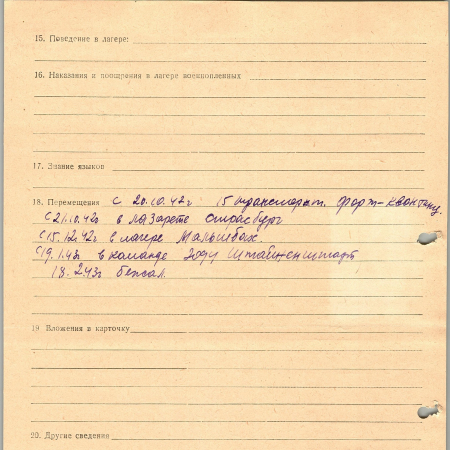 15. Поведение в лагере:
16. Наказания и поощрения в лагере военнопленных
17. Знание языков
18. Перемещения с 20.10.42г 15 транспорт. Форт-
С 21.10.42г в лазарете Страсбург
С 15.12.42г в лагере Мальшбах.
С 19.1.43г в команде
18.2.43г бежал.
19 Вложения в карточку
20. Другие сведения